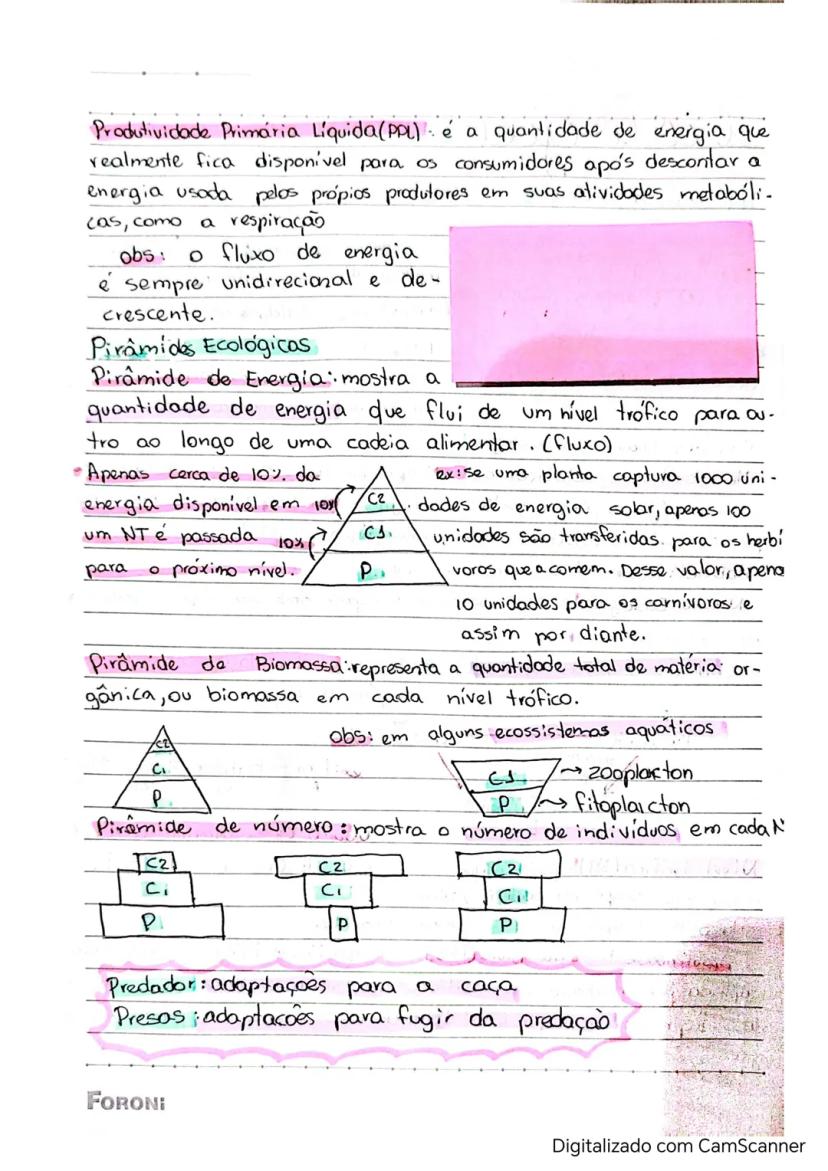 Produtividade Primária Líquida (PPL): é a quantidade de energia que
realmente fica disponível para os consumidores após descontar a
energia usada pelos própios produtores em suas atividades metabóli-
cas, como a respiração
obs: o fluxo de energia
é sempre unidirecional e de-
crescente.
Pirâmides Ecológicas
Pirâmide de Energia: mostra a
quantidade de energia que flui de um nível trófico para ou-
tro ao longo de uma cadeia alimentar. (fluxo)
Apenas cerca de 10% da
energia disponível em
um NT é passada
para o próximo nível.
10%
10%
C2
C1
P
ex: se uma planta captura 1000 uni-
dades de energia solar, apenas 100
unidades são transferidas para os herbí
voros que a comem. Desse valor, apena
10 unidades para os carnívoros e
assim por diante.
Pirâmide de Biomassa: representa a quantidade total de matéria or-
gânica, ou biomassa em cada nível trófico.
obs: em alguns ecossistemas aquáticos
C2
C1
P
C1 → zooplancton
P → fitoplancton
Pirâmide de número: mostra o número de indivíduos em cada N
C2 C2 C2
C1 C1 C1
P P P
Predador: adaptações para a caça
Presas: adaptacões para fugir da predação
FORONI
Digitalizado com CamScanner